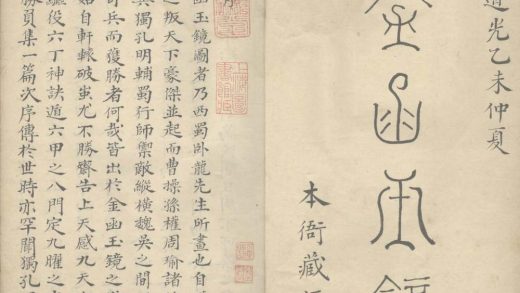 道光乙未仲夏
金函玉鏡
本衙藏
序
函玉鏡圖者乃西蜀卧龍先生所畫也自
之叛天下豪傑並起而曹操孫權周瑜諸
與獨孔明輔蜀行師禦敵縱橫魏吳之間
奇兵而獲勝者何哉皆出於金函玉鏡之
始自軒轅破蚩尤不勝齋告上天感九天
繼役六丁神訣遁六甲之八門定九曜之
勝員集一篇次序傳於世時亦罕聞獨孔